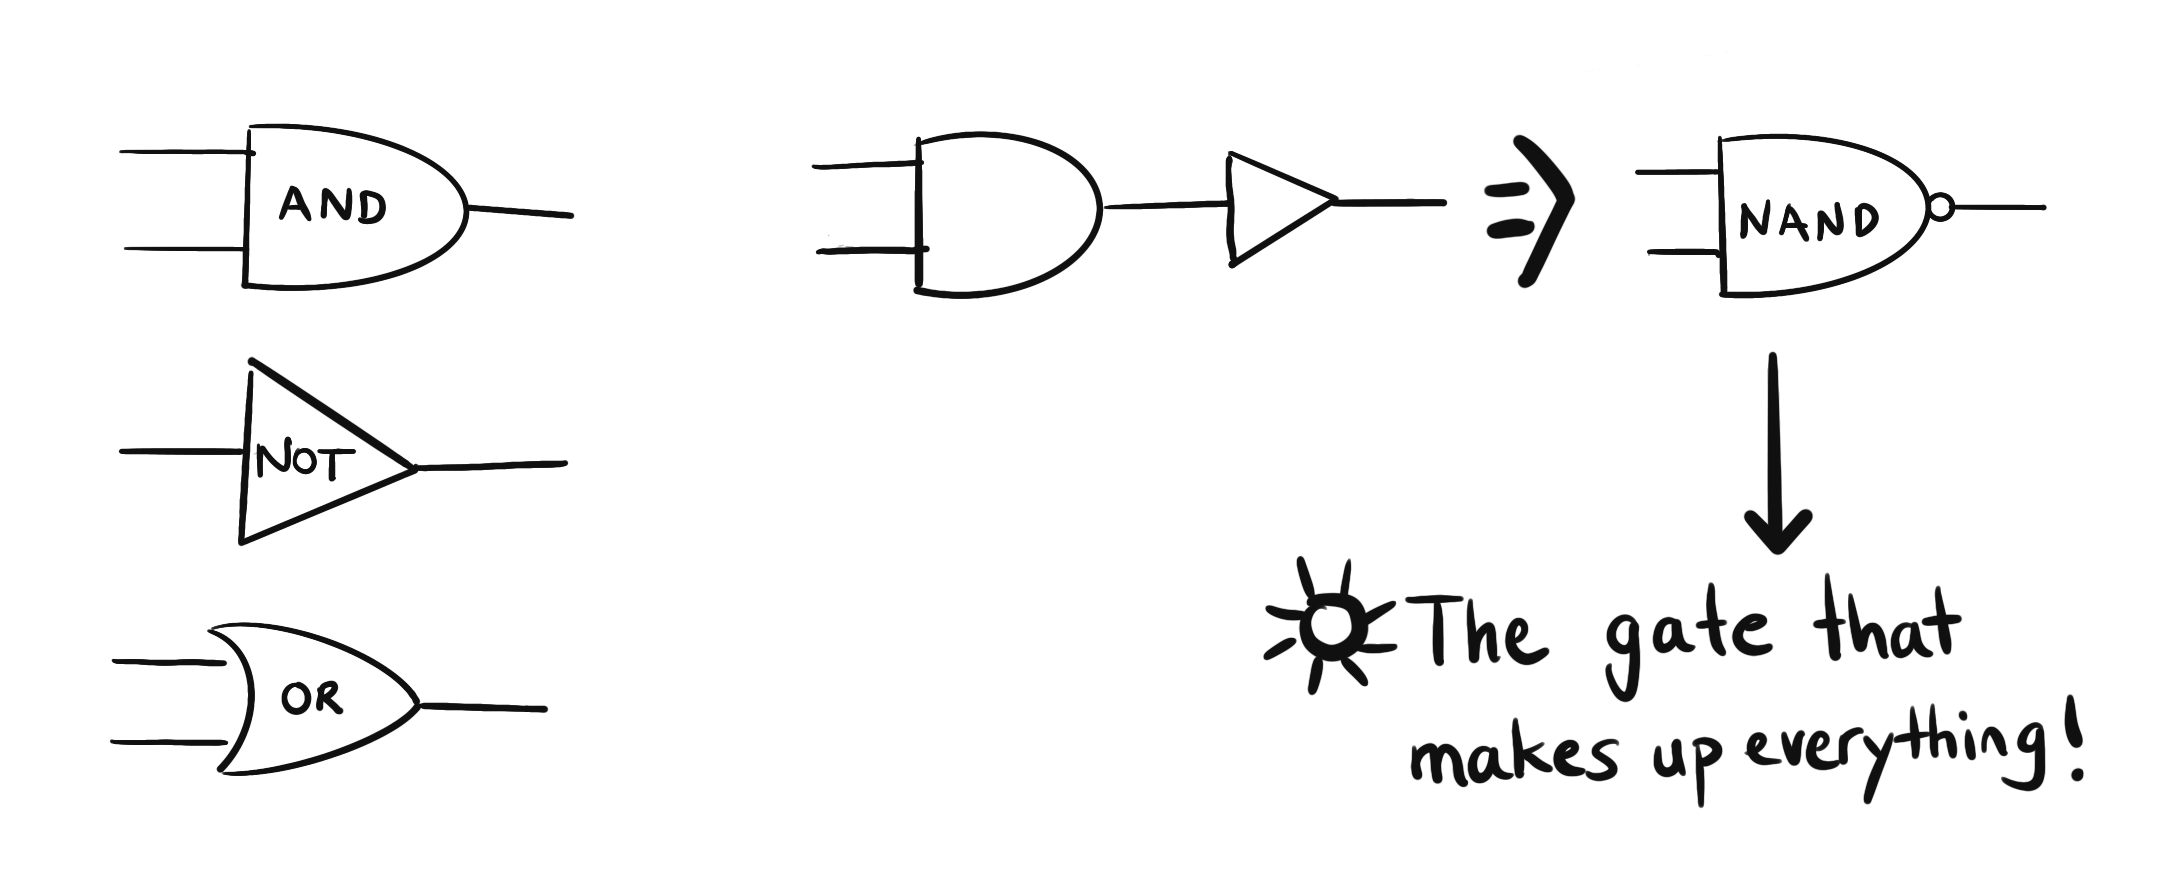 AND
NAND
NOT
OR
The gate that
makes up everything!